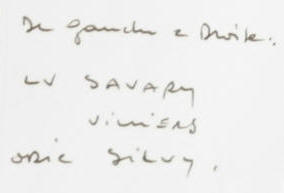 De gauche à Droite:
LV SAVARY
VILLIERS
SILVY.